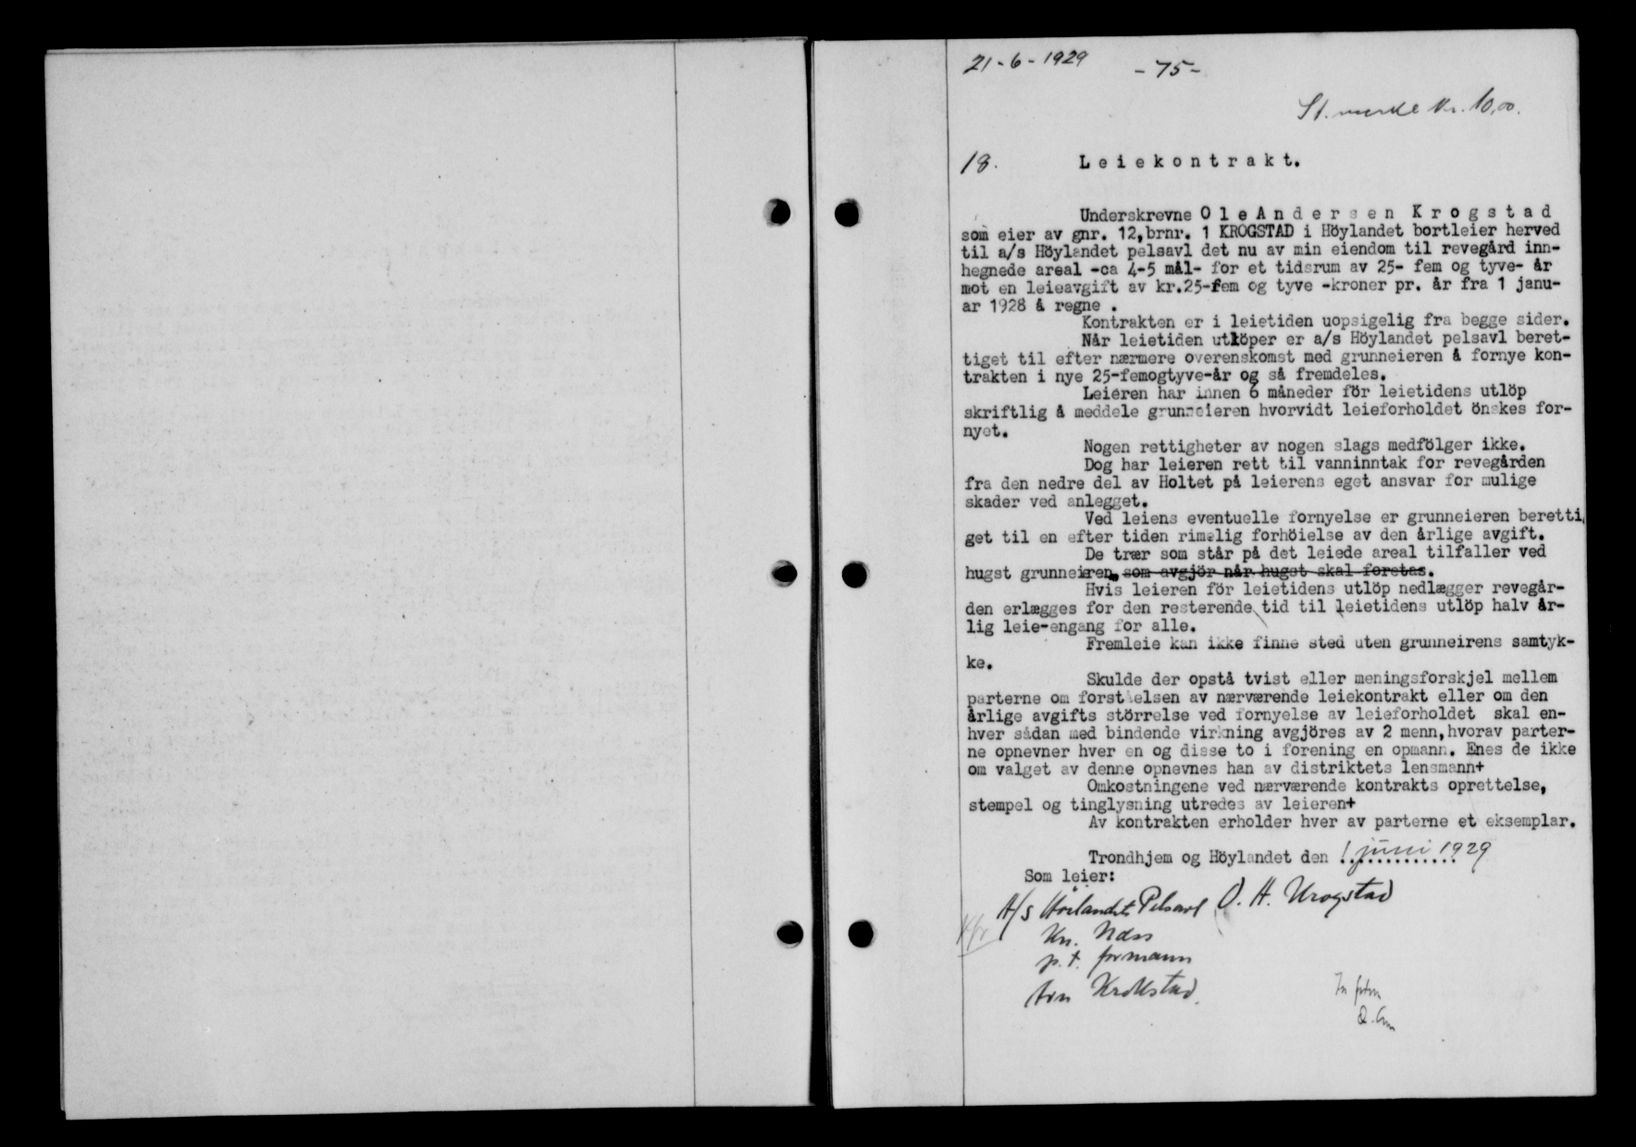 21-6-1929
-75-
St. merke kr. 10,00.
18.
Leiekontrakt.
Underskrevne Ole Andersen Krogstad
som eier av gnr. 12,brnr. 1 KROGSTAD i Höylandet bortleier herved
til a/s Höylandet pelsavl det nu av min eiendom til revegård inn-
hegnede areal -ca 4-5 mål- for et tidsrum av 25- fem og tyve- år
mot en leieavgift av kr.25-fem og tyve -kroner pr. år fra 1 janu-
ar 1928 å regne .
Kontrakten er i leietiden uopsigelig fra begge sider.
Når leietiden utlöper er a/s Höylandet pelsavl beret-
tiget til efter nærmere overenskomst med grunneieren å fornye kon-
trakten i nye 25-femogtyve-år og så fremdeles.
Leieren har innen 6 måneder för leietidens utlöp
skriftlig å meddele grunneieren hvorvidt leieforholdet önskes for-
nyet.
Nogen rettigheter av nogen slags medfölger ikke.
Dog har leieren rett til vanninntak for revegården
fra den nedre del av Holtet på leierens eget ansvar for mulige
skader ved anlegget.
Ved leiens eventuelle fornyelse er grunneieren beretti
get til en efter tiden rimelig forhöielse av den årlige avgift.
De trær som står på det leiede areal tilfaller ved
hugst grunneieren, som avgjör når hugst skal foretas.
Hvis leieren för leietidens utlöp nedlægger revegår-
den erlægges for den resterende tid til leietidens utlöp halv år-
lig leie-engang for alle.
Fremleie kan ikke finne sted uten grunneirens samtyk-
ke.
Skulde der opstå tvist eller meningsforskjel mellem
parterne om forståelsen av nærværende leiekontrakt eller om den
årlige avgifts störrelse ved fornyelse av leieforholdet skal en-
hver sådan med bindende virkning avgjöres av 2 menn,hvorav parter-
ne opnevner hver en og disse to i forening en opmann. Enes de ikke
om valget av denne opnevnes han av distriktets lensmann+
Omkostningene ved nærværende kontrakts oprettelse,
stempel og tinglysning utredes av leieren+
Av kontrakten erholder hver av parterne et eksemplar.
Trondhjem og Höylandet den 1 juni 1929
Som leier:
A/s Høilandet Pelsavl O. A. Krogstad
Kn. Næss
p.t. formann
Krokstad